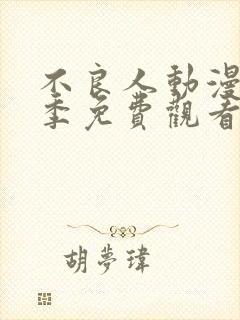 不良人動漫
季免費觀看
胡夢瑋